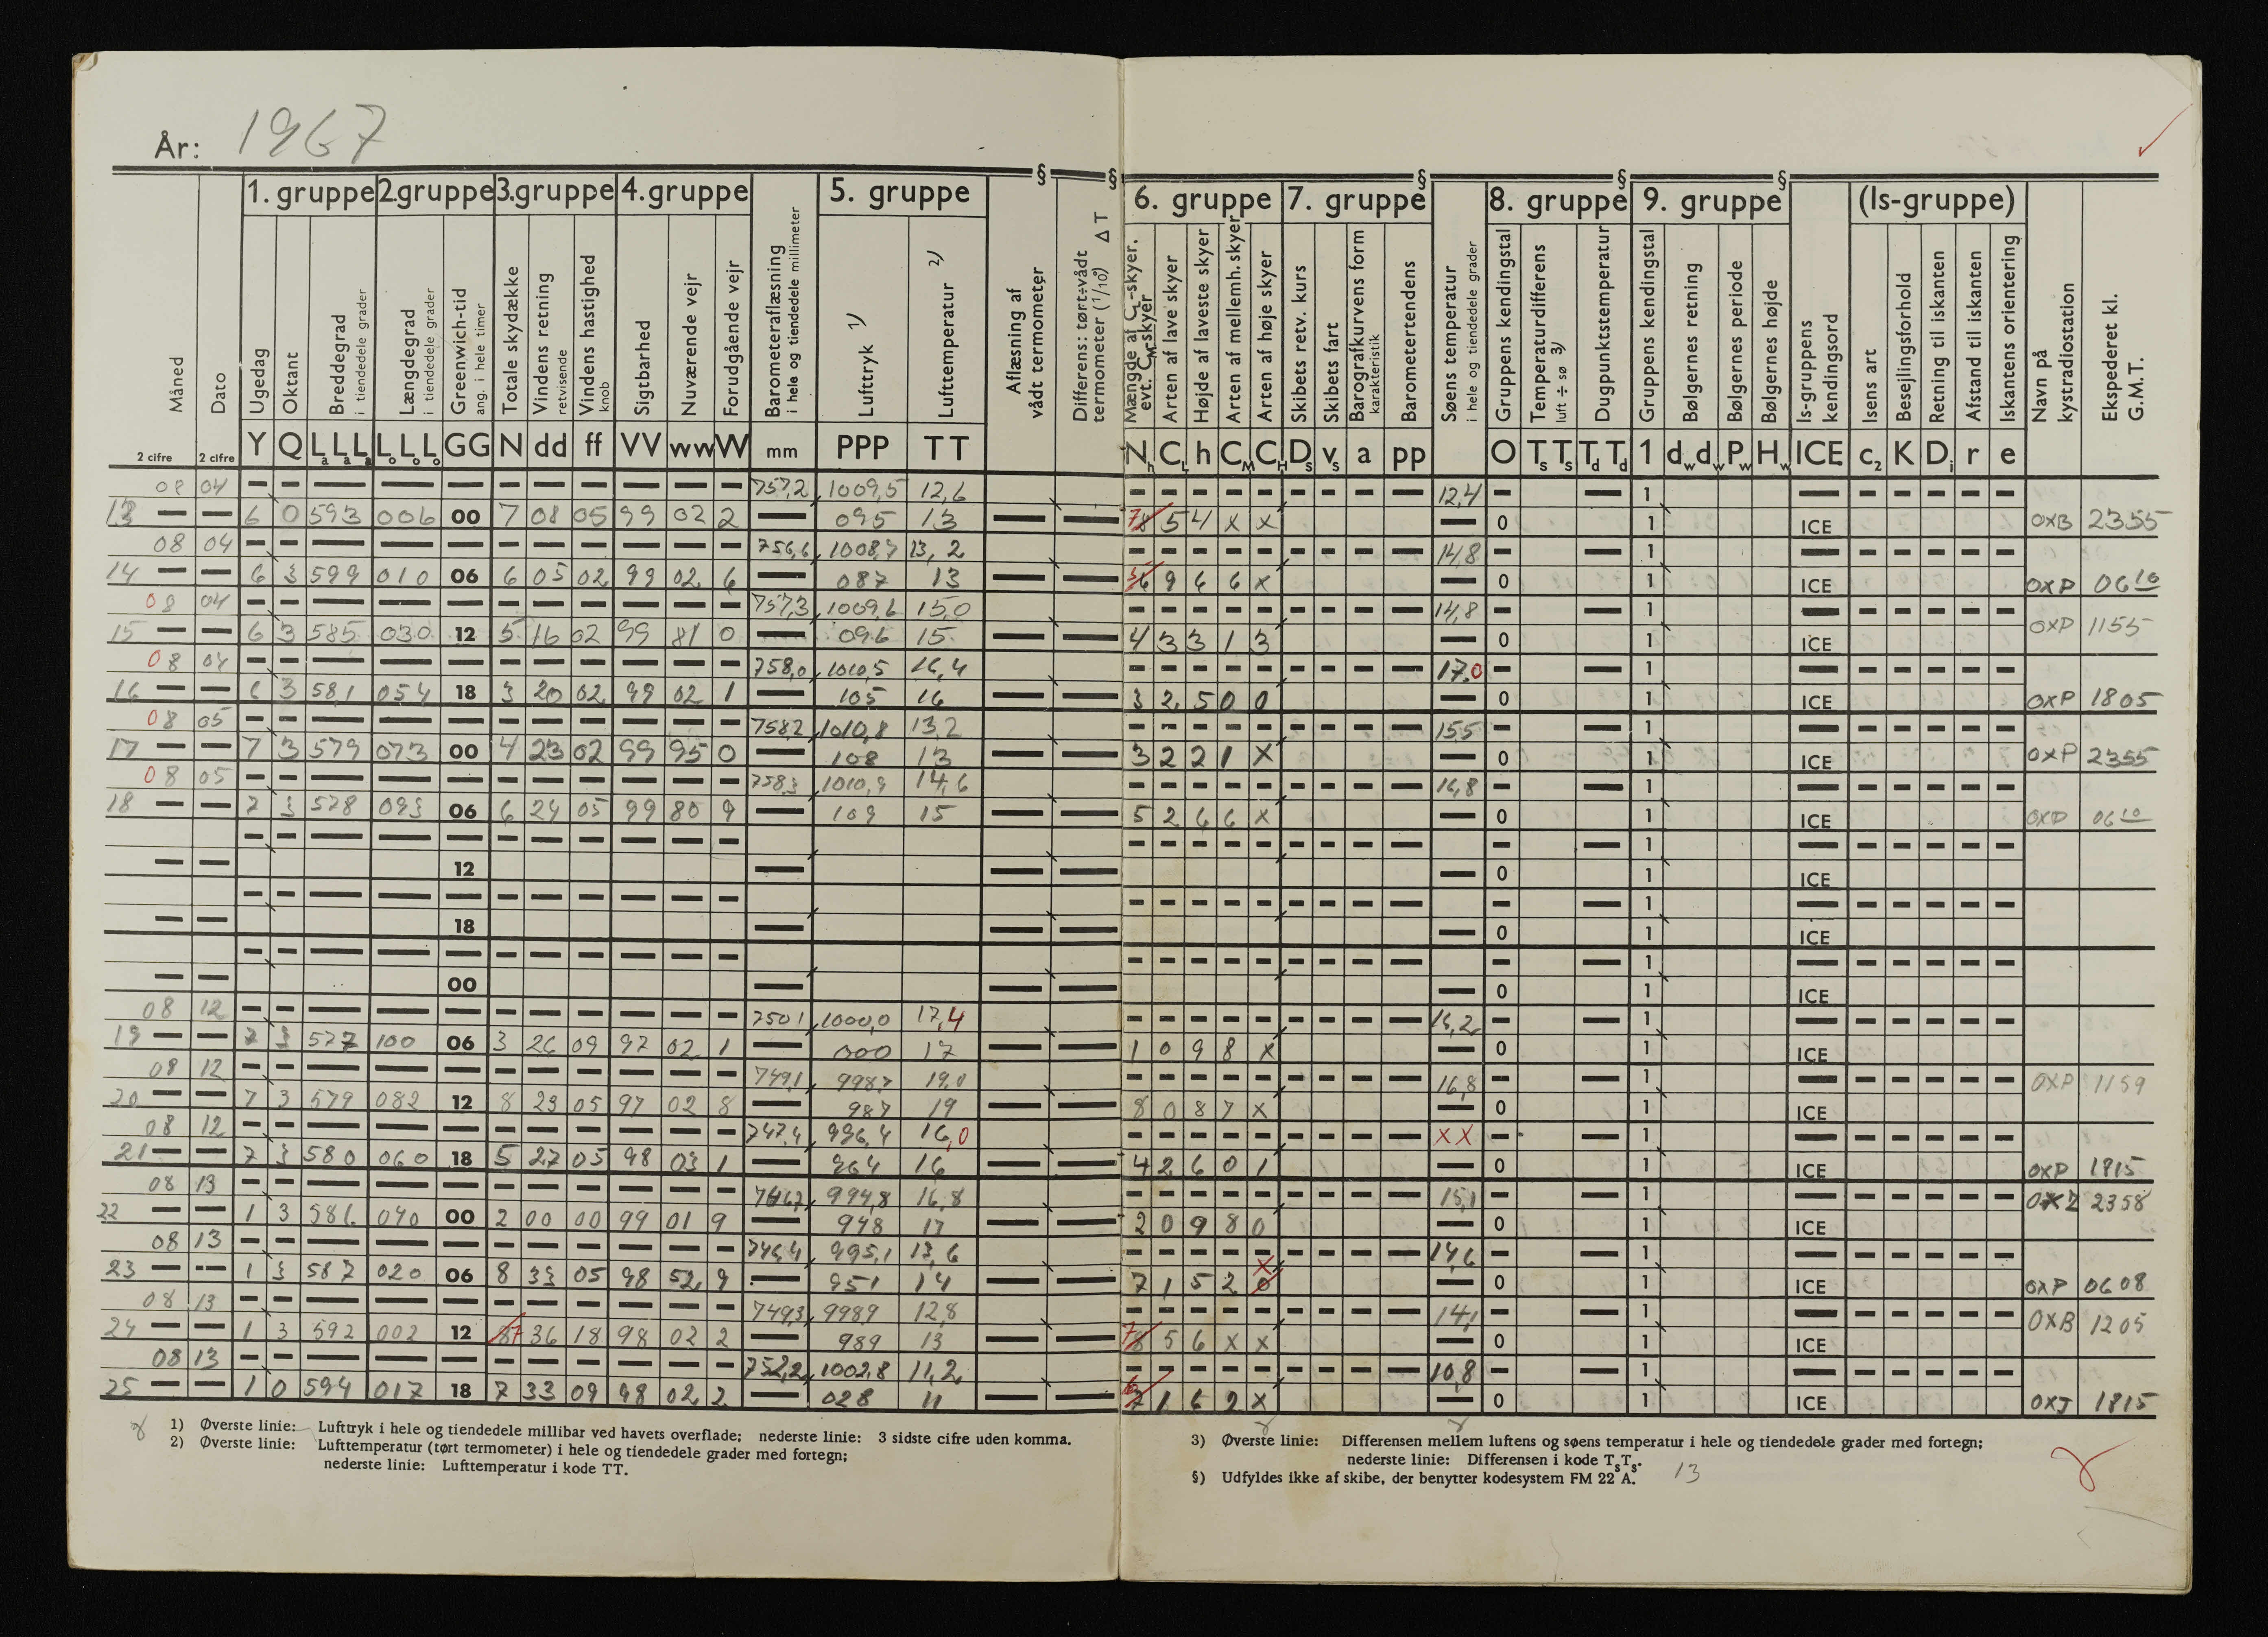 År: 1967
1. gruppe 2.gruppe 3.gruppe 4.gruppe 5. gruppe § § 6. gruppe 7. gruppe § 8. gruppe § 9. gruppe § (Is-gruppe)
Måned Dato Ugedag Oktant Breddegrad i tiendedele grader Længdegrad i tiendedele grader Greenwich-tid ang. i hele timer Totale skydække Vindens retning retvisende Vindens hastighed knob Sigtbarhed Nuværende vejr Forudgående vejr Barometeraflæsning i hele og tiendedele millimeter Lufttryk 1) Lufttemperatur 2) Aflæsning af vådt termometer Differens: tørt÷vådt termometer (1/10°) Δ T Mængde af CL-skyer. evt. CM-skyer Arten af lave skyer Højde af laveste skyer Arten af mellemh. skyer Arten af høje skyer Skibets retv. kurs Skibets fart Barografkurvens form karakteristik Barometertendens Søens temperatur i hele og tiendedele grader Gruppens kendingstal Temperaturdifferens luft ÷ sø 3) Dugpunktstemperatur Gruppens kendingstal Bølgernes retning Bølgernes periode Bølgernes højde Is-gruppens kendingsord Isens art Besejlingsforhold Retning til iskanten Afstand til iskanten Iskantens orientering Navn på kystradiostation Ekspederet kl. G.M.T.
2 cifre 2 cifre Y Q LaLaLa LoLoLo GG N dd ff VV ww W mm PPP TT Nh CL h CM CH Ds vs a pp O TsTs TdTd 1 dwdw Pw Hw ICE c2 K Di r e
08 04 757,2 1009,5 12,6 12,4 1
13 6 0 593 006 00 7 08 05 99 02 2 095 13 7 8 5 4 x x 0 1 ICE OXB 2355
08 04 756,6 1008,7 13,2 14,8 1
14 6 3 599 010 06 6 05 02 99 02 6 087 13 9 6 6 x 0 1 ICE OXP 0610
08 04 757,3 1009,6 15,0 14,8 1
15 6 3 585 030 12 5 16 02 99 81 0 096 15 4 3 3 1 3 0 1 ICE OXP 1155
08 04 758,0 1010,5 16,4 17,0 1
16 6 3 581 054 18 3 20 02 99 02 1 105 16 3 2 5 0 0 0 1 ICE OXP 1805
08 05 758,2 1010,8 13,2 15,5 1
17 7 3 579 073 00 4 23 02 99 95 0 108 13 3 2 2 1 x 0 1 ICE OXP 2355
08 05 758,3 1010,9 14,6 16,8 1
18 7 3 578 093 06 6 24 05 99 80 9 109 15 5 2 6 6 x 0 1 ICE OXP 0610
1
12 0 1 ICE
1
18 0 1 ICE
1
00 0 1 ICE
08 12 750,1 1000,0 17,4 1
19 7 3 577 100 06 3 26 09 97 02 1 000 17 1 0 9 8 x 0 1 ICE
08 12 749,1 998,7 19,0 16,8 1
20 7 3 579 082 12 8 23 05 97 02 8 987 19 8 0 8 7 x 0 1 ICE OXP 1159
08 12 747,4 996,4 16,0 x x 1
21 7 3 580 060 18 5 27 05 98 03 1 964 16 4 2 6 0 1 0 1 ICE OXP 1815
08 13 994,8 16,8 15,1 1
22 1 3 586 040 00 2 00 00 99 01 9 948 17 2 0 9 8 0 0 1 ICE OXZ 2358
08 13 746,4 995,1 13,6 14,6 1
23 1 3 587 020 06 8 33 05 98 52 9 951 14 7 1 5 2 0 x 0 1 ICE OXP 0608
08 13 749,3 998,9 12,8 14,1 1
24 1 3 592 002 12 8 7 36 18 98 02 2 989 13 7 8 5 6 x x 0 1 ICE OXB 1205
08 13 752,2 1002,8 11,2 10,8 1
25 1 0 594 017 18 7 33 09 98 02 2 028 11 6 7 1 6 2 x 0 1 ICE OXJ 1815
1) Øverste linie: Lufttryk i hele og tiendedele millibar ved havets overflade; nederste linie: 3 sidste cifre uden komma.
2) Øverste linie: Lufttemperatur (tørt termometer) i hele og tiendedele grader med fortegn;
nederste linie: Lufttemperatur i kode TT.
3) Øverste linie: Differensen mellem luftens og søens temperatur i hele og tiendedele grader med fortegn;
nederste linie: Differensen i kode TsTs.
§) Udfyldes ikke af skibe, der benytter kodesystem FM 22 A. 13